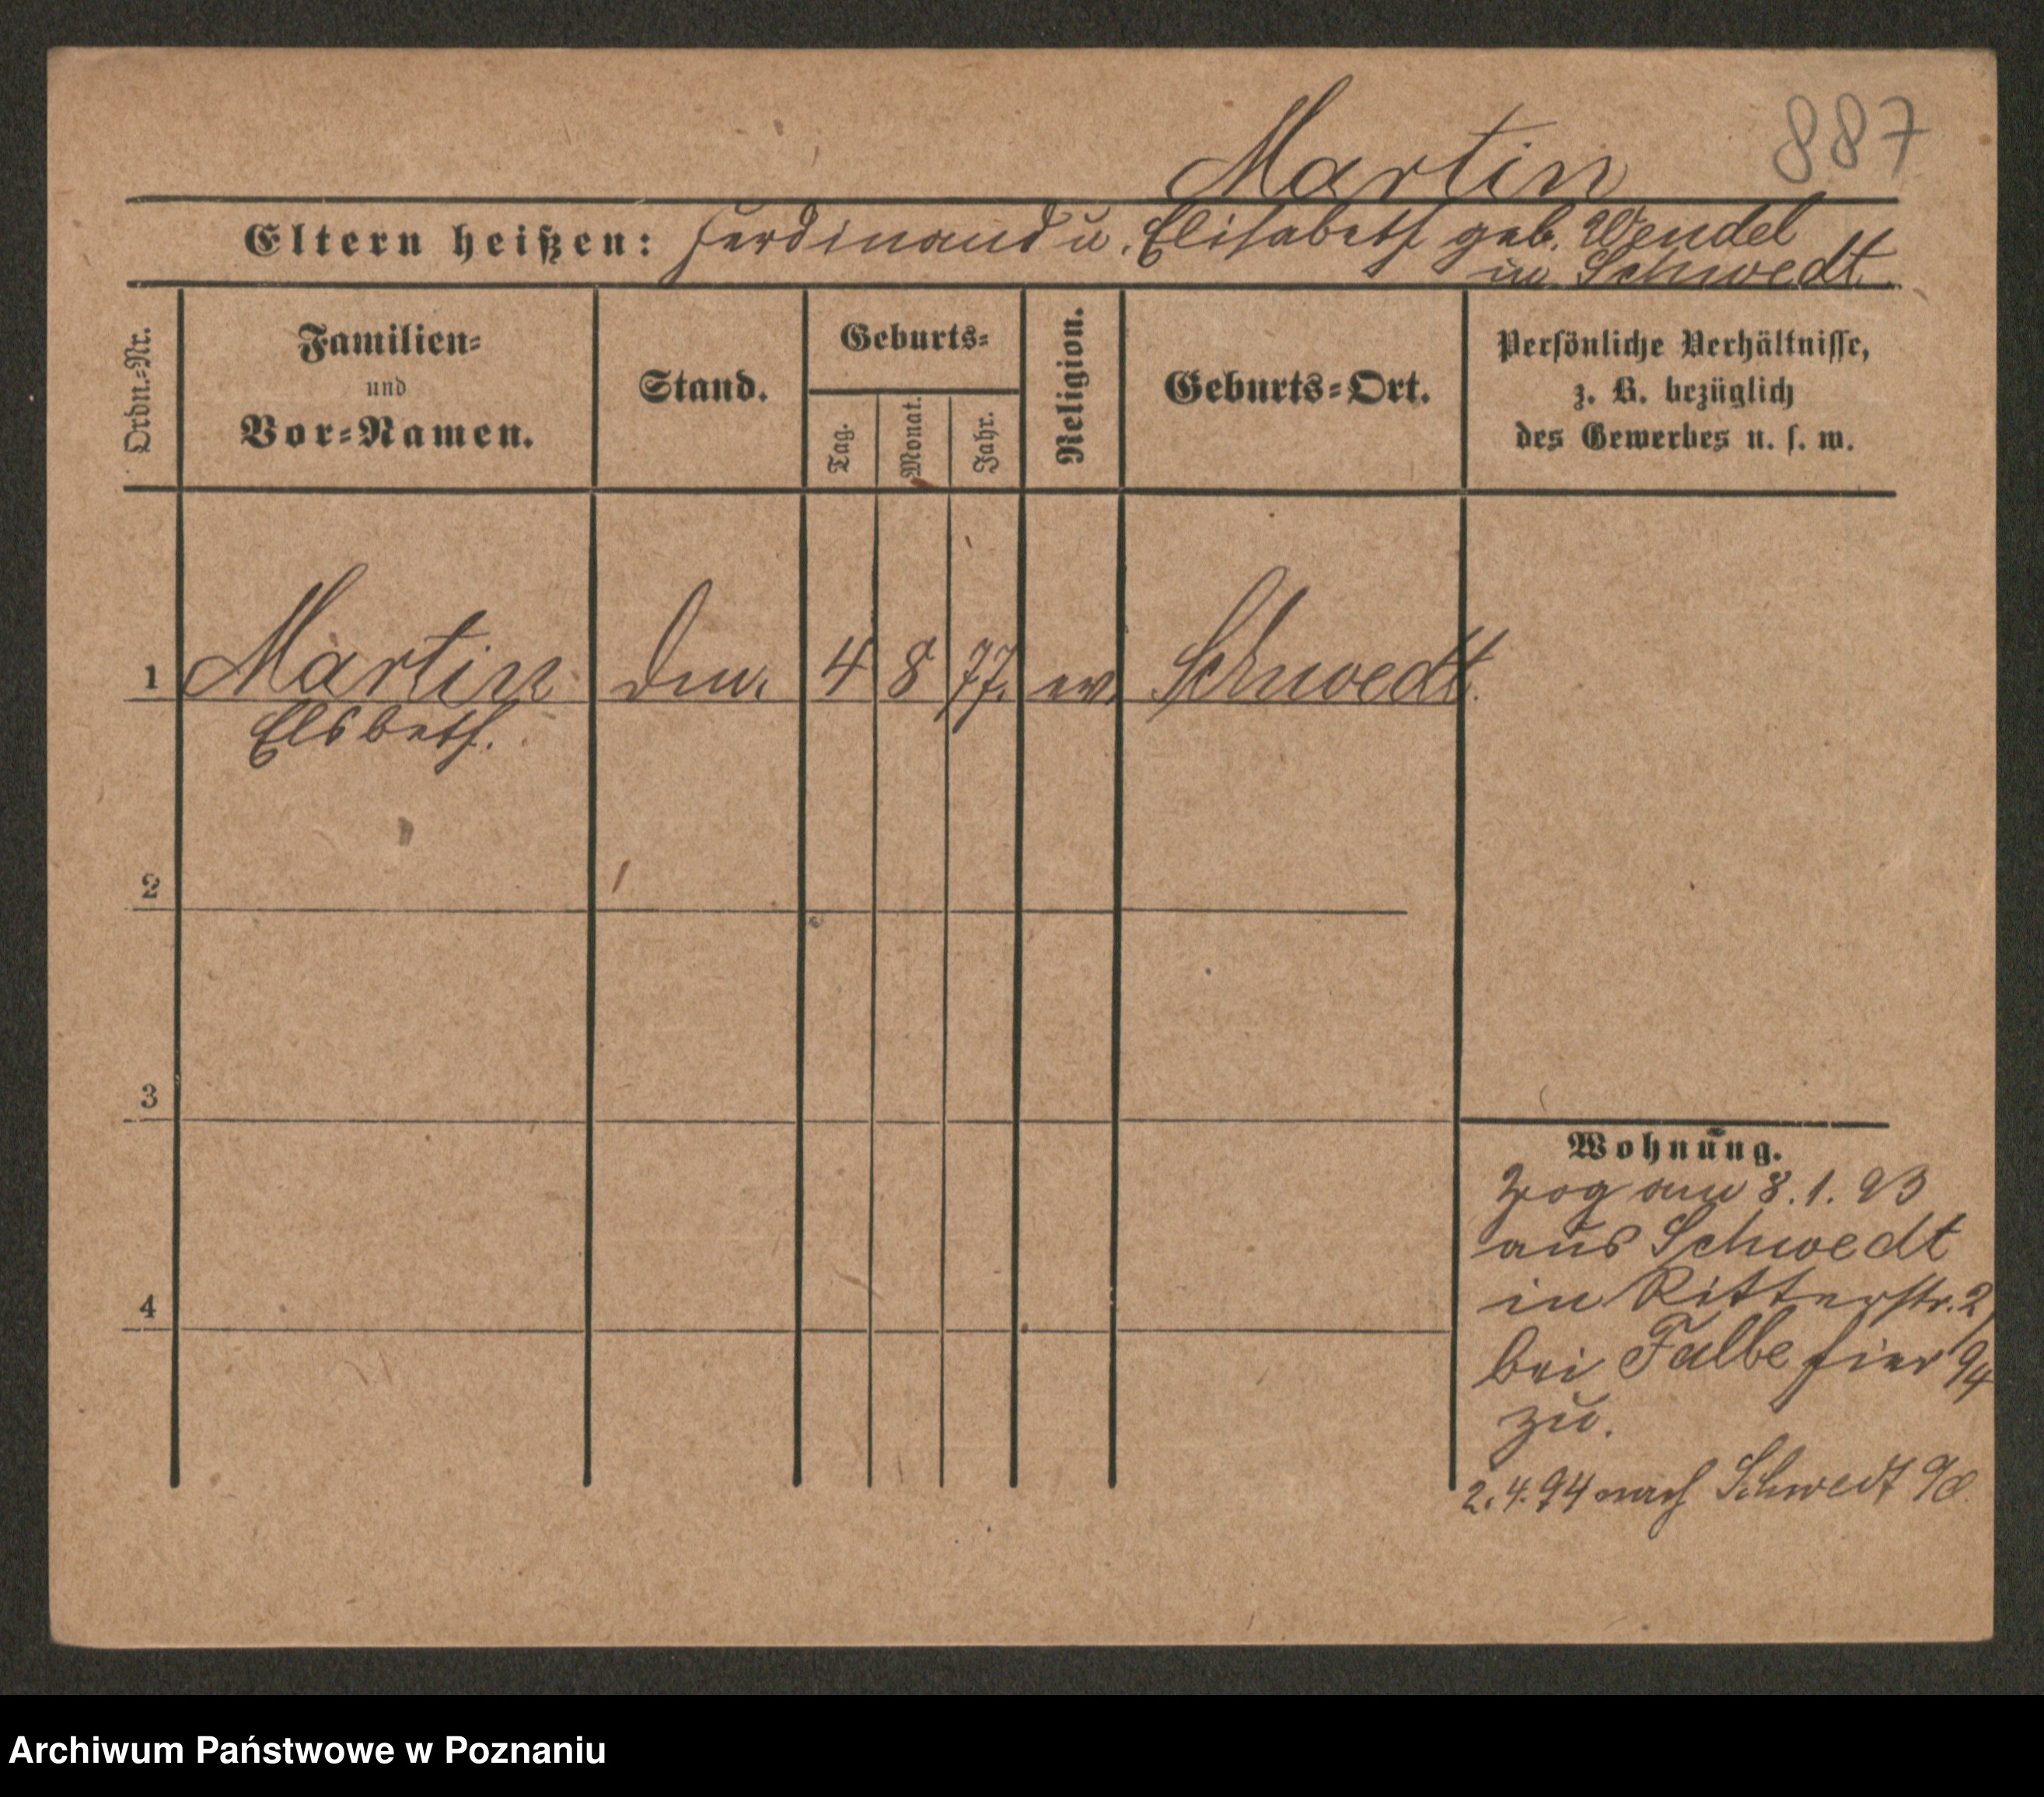 887
Martin
Eltern heißen: Ferdinand u. Elisabeth geb. Wendel
in Schwedt.
Ordn.-Nr.
Familien-
und
Vor-Namen.
Stand.
Geburts-
Tag.
Monat.
Jahr.
Religion.
Geburts-Ort.
Persönliche Verhältnisse,
z. B. bezüglich
des Gewerbes u. s. w.
1 Martin 4 8 77. ev. Schwedt.
Elsbeth.
2
3
4
Wohnung.
Zog am 3.1.93
aus Schwedt
in Ritterstr. 2
bei Falbe hier
zu.
2.4.94 nach Schwedt
Archiwum Państwowe w Poznaniu